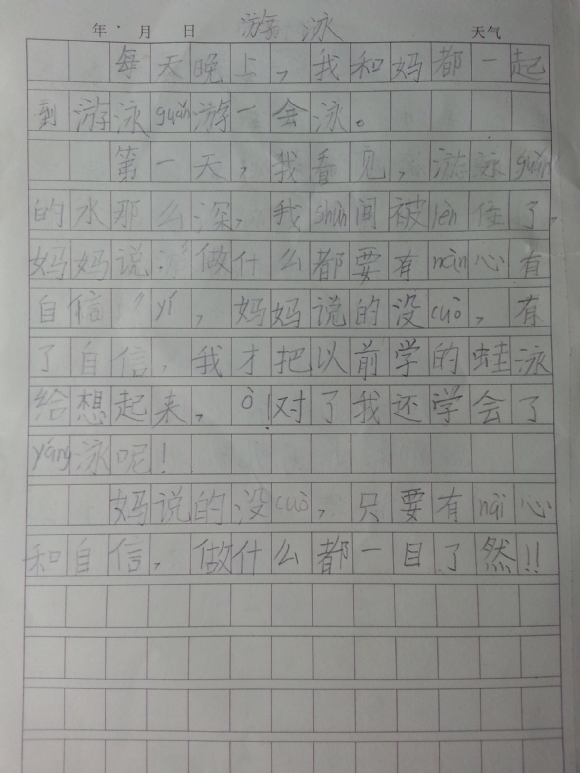 年 月 日 游泳 天气
每天晚上，我和妈都一起
到游泳guǎn游一会泳。
第一天，我看见，游泳guǎn
的水那么深，我shùn间被lèn住了，
妈妈说：“做什么都要有nàn心有
自信”yí，妈妈说的没cuò，有
了自信，我才把以前学的蛙泳
给想起来，ò！对了我还学会了
yáng泳呢！
妈说的没cuò，只要有nài心
和自信，做什么都一目了然！！